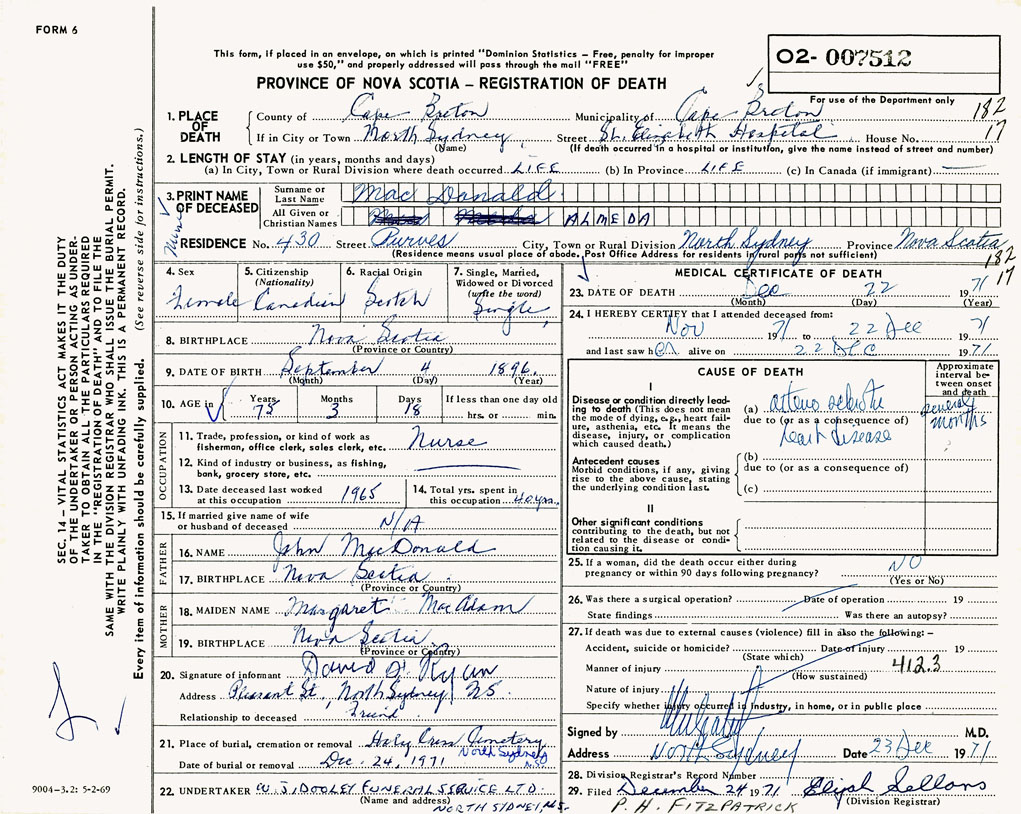 FORM 6
This form, if placed in an envelope, on which is printed "Dominion Statistics – Free, penalty for improper
use $50," and properly addressed will pass through the mail "FREE"
02- 007512
PROVINCE OF NOVA SCOTIA – REGISTRATION OF DEATH
For use of the Department only
182
17
1. PLACE OF DEATH
County of Cape Breton Municipality of Cape Breton
If in City or Town North Sydney Street St. Elizabeth Hospital House No.
(Name) (If death occurred in a hospital or institution, give the name instead of street and number)
2. LENGTH OF STAY (in years, months and days)
(a) In City, Town or Rural Division where death occurred LIFE (b) In Province LIFE (c) In Canada (if immigrant) —
3. PRINT NAME OF DECEASED
Surname or Last Name Mac Donald
All Given or Christian Names ALMEDA
RESIDENCE No. 430 Street Purves City, Town or Rural Division North Sydney Province Nova Scotia
(Residence means usual place of abode. Post Office Address for residents in rural parts not sufficient)
182
17
4. Sex
Female
5. Citizenship
(Nationality)
Canadian
6. Racial Origin
Scotch
7. Single, Married,
Widowed or Divorced
(write the word)
Single
8. BIRTHPLACE Nova Scotia
(Province or Country)
9. DATE OF BIRTH September 4 1896
(Month) (Day) (Year)
10. AGE in
Years Months Days If less than one day old
75 3 18 hrs. or min.
OCCUPATION
11. Trade, profession, or kind of work as
fisherman, office clerk, sales clerk, etc. Nurse
12. Kind of industry or business, as fishing,
bank, grocery store, etc.
13. Date deceased last worked
at this occupation 1965
14. Total yrs. spent in
this occupation 40 yrs.
15. If married give name of wife
or husband of deceased N/A
FATHER
16. NAME John MacDonald
17. BIRTHPLACE Nova Scotia
(Province or Country)
MOTHER
18. MAIDEN NAME Margaret MacAdam
19. BIRTHPLACE Nova Scotia
(Province or Country)
20. Signature of informant David J. Ryan
Address Pleasant St, North Sydney NS.
Relationship to deceased Friend
21. Place of burial, cremation or removal Holy Cross Cemetery
North Sydney
N.S.
Date of burial or removal Dec. 24, 1971
22. UNDERTAKER W. J. DOOLEY FUNERAL SERVICE LTD.
(Name and address) NORTH SIDNEY, N.S.
MEDICAL CERTIFICATE OF DEATH
23. DATE OF DEATH Dec 22 1971
(Month) (Day) (Year)
24. I HEREBY CERTIFY that I attended deceased from:
Nov 1971 to 22 Dec 71
and last saw her alive on 22 Dec 1971
CAUSE OF DEATH
Approximate
interval be-
tween onset
and death
I
Disease or condition directly lead-
ing to death (This does not mean
the mode of dying, e.g., heart fail-
ure, asthenia, etc. It means the
disease, injury, or complication
which caused death.)
(a)
due to (or as a consequence of)
heart disease
several
months
Antecedent causes
Morbid conditions, if any, giving
rise to the above cause, stating
the underlying condition last.
(b)
due to (or as a consequence of)
(c)
II
Other significant conditions
contributing to the death, but not
related to the disease or condi-
tion causing it.
25. If a woman, did the death occur either during
pregnancy or within 90 days following pregnancy? NO
(Yes or No)
26. Was there a surgical operation? Date of operation 19
State findings Was there an autopsy?
27. If death was due to external causes (violence) fill in also the following: –
Accident, suicide or homicide? Date of injury 19
(State which)
Manner of injury 412.3
(How sustained)
Nature of injury
Specify whether injury occurred in industry, in home, or in public place
Signed by M.D.
Address North Sydney Date 23 Dec 1971
28. Division Registrar's Record Number
29. Filed December 24 1971 Elijah Sellars
P. H. FITZPATRICK (Division Registrar)
SEC. 14 – VITAL STATISTICS ACT MAKES IT THE DUTY
OF THE UNDERTAKER OR PERSON ACTING AS UNDER-
TAKER TO OBTAIN ALL THE PARTICULARS REQUIRED
IN THE "REGISTRATION OF DEATH" AND TO FILE THE
SAME WITH THE DIVISION REGISTRAR WHO SHALL ISSUE THE BURIAL PERMIT.
WRITE PLAINLY WITH UNFADING INK. THIS IS A PERMANENT RECORD.
Every item of information should be carefully supplied. (See reverse side for instructions.)
9004-3.2: 5-2-69